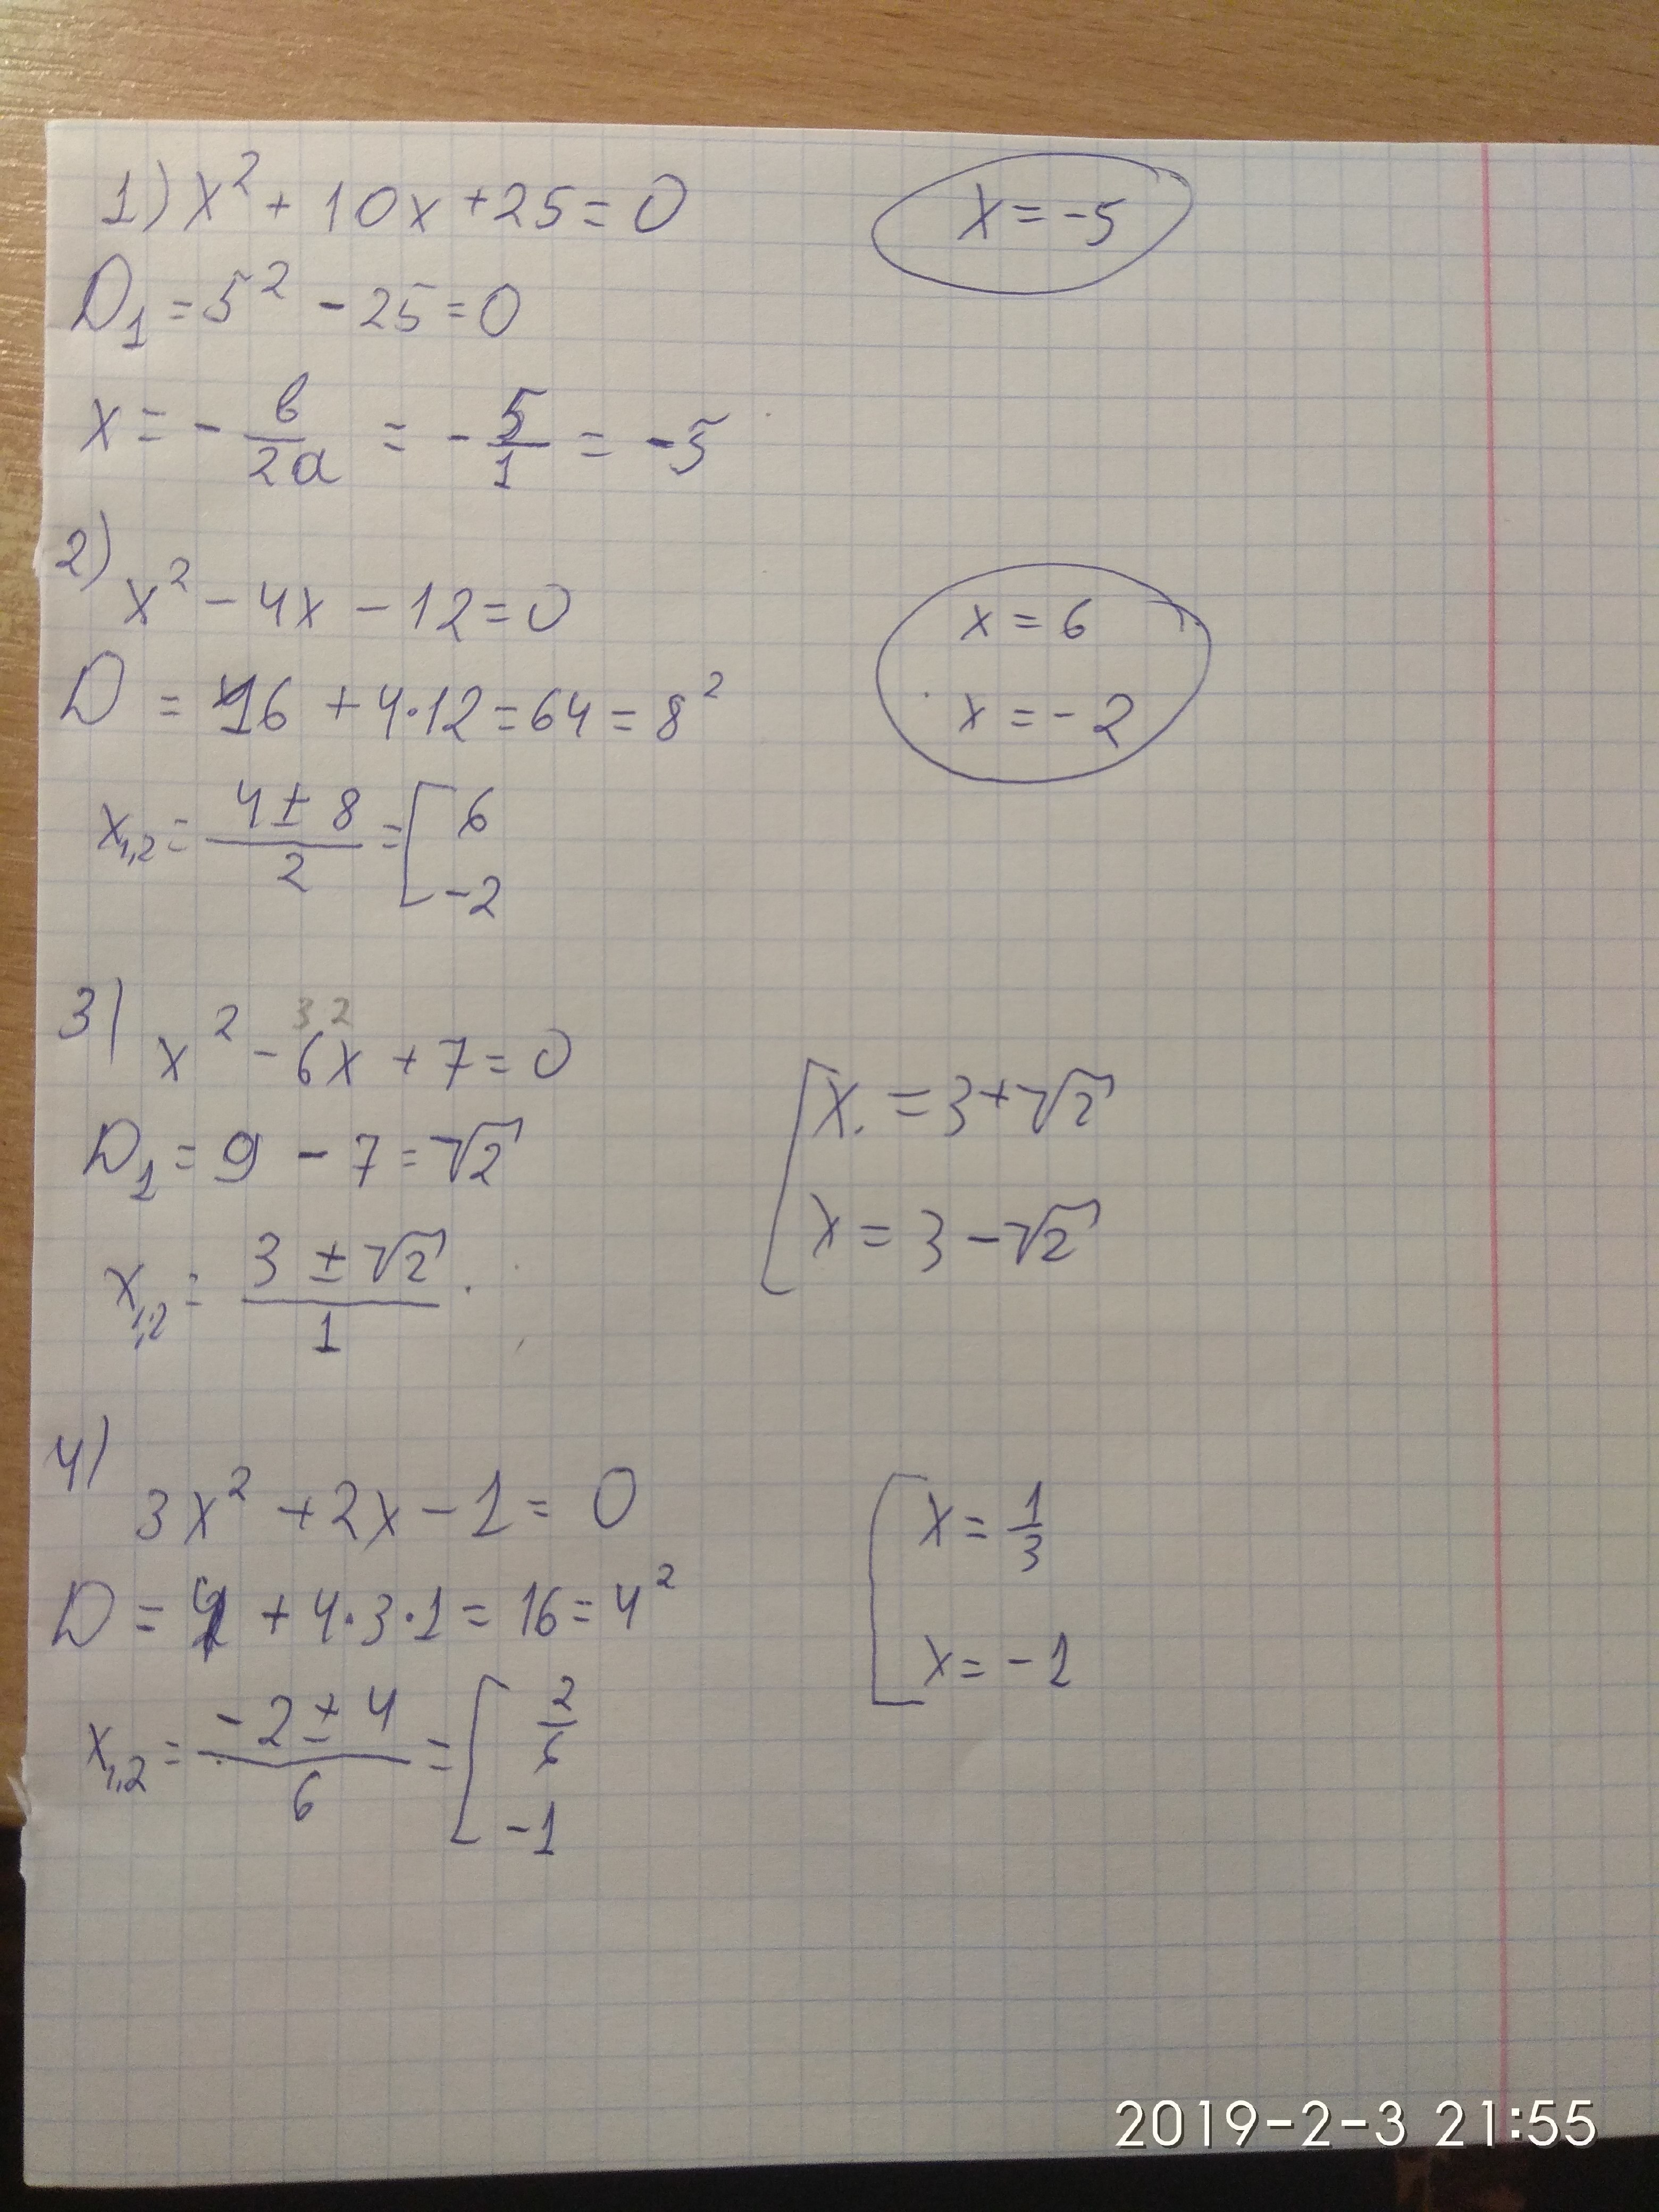 1) x² + 10x + 25 = 0
x = -5
D₁ = 5² - 25 = 0
x = - в/2a = - 5/1 = -5
2)
x² - 4x - 12 = 0
x = 6
x = -2
D = 16 + 4·12 = 64 = 8²
x₁,₂ = (4 ± 8)/2 = [ 6
-2
3)
3 2
x² - 6x + 7 = 0
D₁ = 9 - 7 = √2
x₁,₂ = (3 ± √2)/1 .
[ x. = 3 + √2
x = 3 - √2
4)
3x² + 2x - 1 = 0
D = 4 + 4·3·1 = 16 = 4²
x₁,₂ = (-2 ± 4)/6 = [ 2/6
-1
[ x = 1/3
x = -1
2019-2-3 21:55